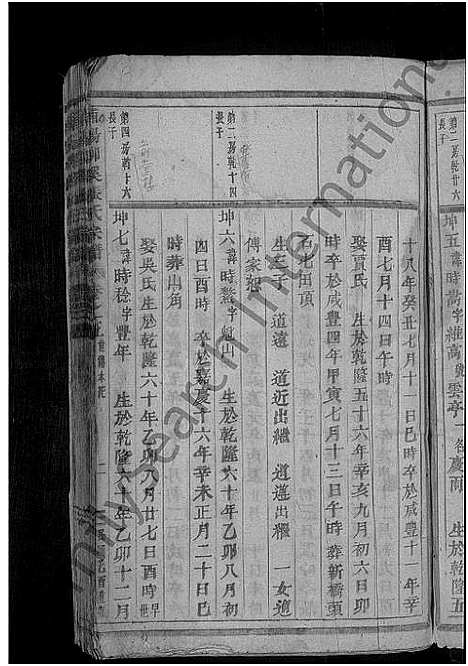 第二房乾廿六
長子
坤五諱時嵩字維高號雲亭一名慶雨 生於乾隆五
十八年癸丑七月十一日巳時卒於咸豐十一年辛
酉七月十四日午時
娶賈氏 生於乾隆五十六年辛亥九月初六日卯
時卒於咸豐四年甲寅七月十三日午時 葬新橋頭
石七田頂
生三子 道遠 道近出繼 道達出繼 一女適
傅家
第二房乾十四
長子
坤六諱時鰲字魁山 生於乾隆六十年乙卯八月初
四日酉時 卒於嘉慶十六年辛未正月二十日巳
時葬出角
娶吳氏生於乾隆六十年乙卯八月廿七日酉時早
世
第四房乾廿六
長子
坤七諱時稔字豐年 生於乾隆六十年乙卯十二月
MySearch International